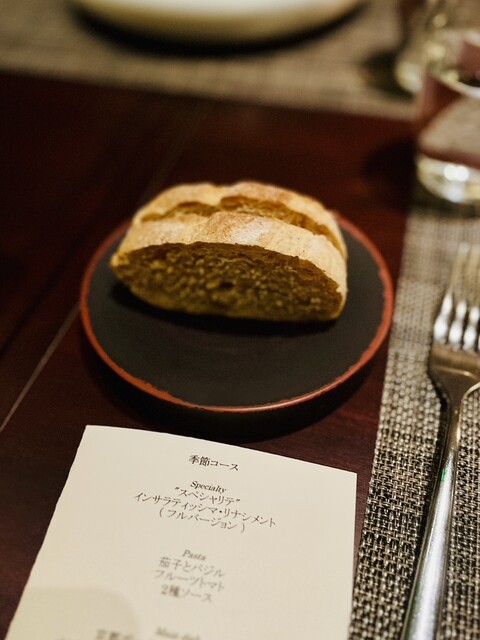 季節コース
Specialty
"スペシャリテ"
インサラティッシマ・リナシメント
(フルバージョン)
Pasta
茄子とバジル
フルーツトマト
2種ソース
Main dish